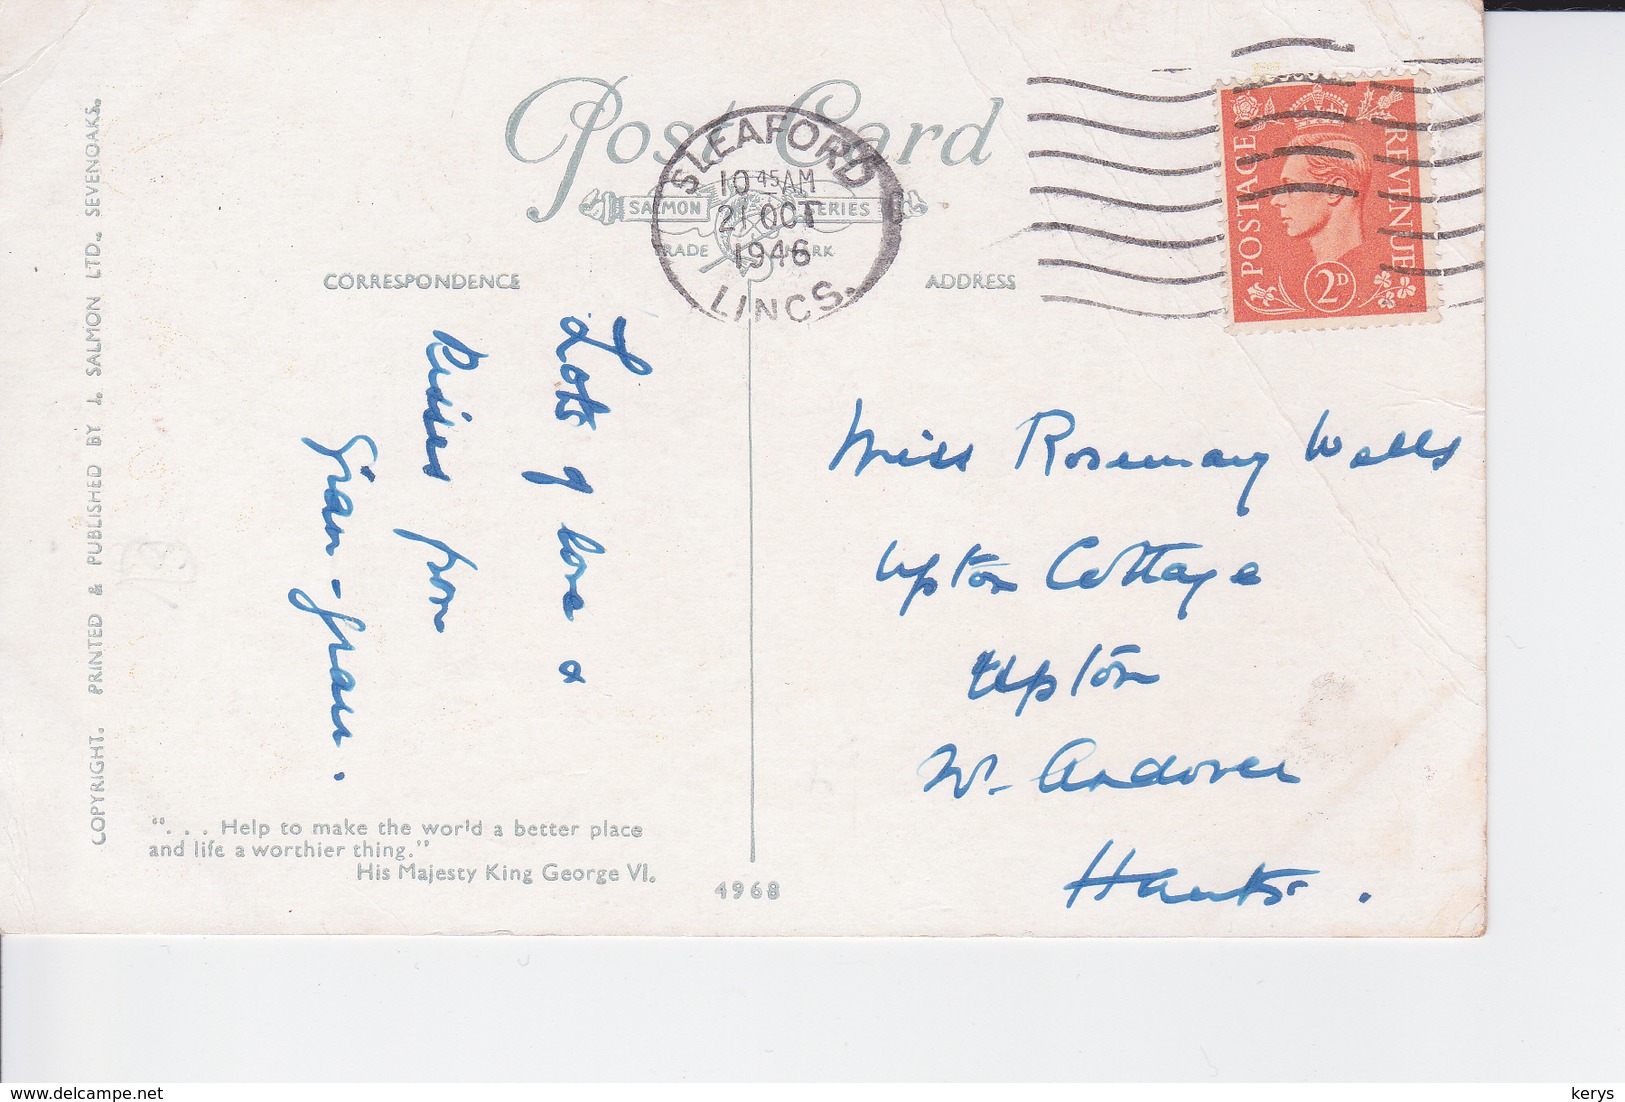 Post Card
SALMON SERIES
TRADE MARK
SLEAFORD
10 45 AM
21 OCT
1946
LINCS.
POSTAGE
REVENUE
2D
CORRESPONDENCE
ADDRESS
Lots of love &
Kisses from
Gran-gran.
Miss Rosemary Wells
Upton Cottage
Upton
Nr. Andover
Hants.
". . . Help to make the world a better place
and life a worthier thing."
His Majesty King George VI.
4968
COPYRIGHT. PRINTED & PUBLISHED BY J. SALMON LTD., SEVENOAKS.
www.delcampe.net
kerys